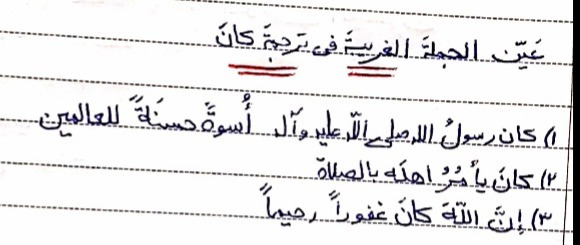 عَيِّن الجملةَ الغریبةَ فی ترجمةَ کانَ
۱) کان رسولُ الله صلی الله علیه و آله أُسوةً حسنَةً للعالمین
۲) کانَ یأمُرُ اهلَه بالصلاة
۳) إنَّ اللّهَ کانَ غفوراً رحیماً